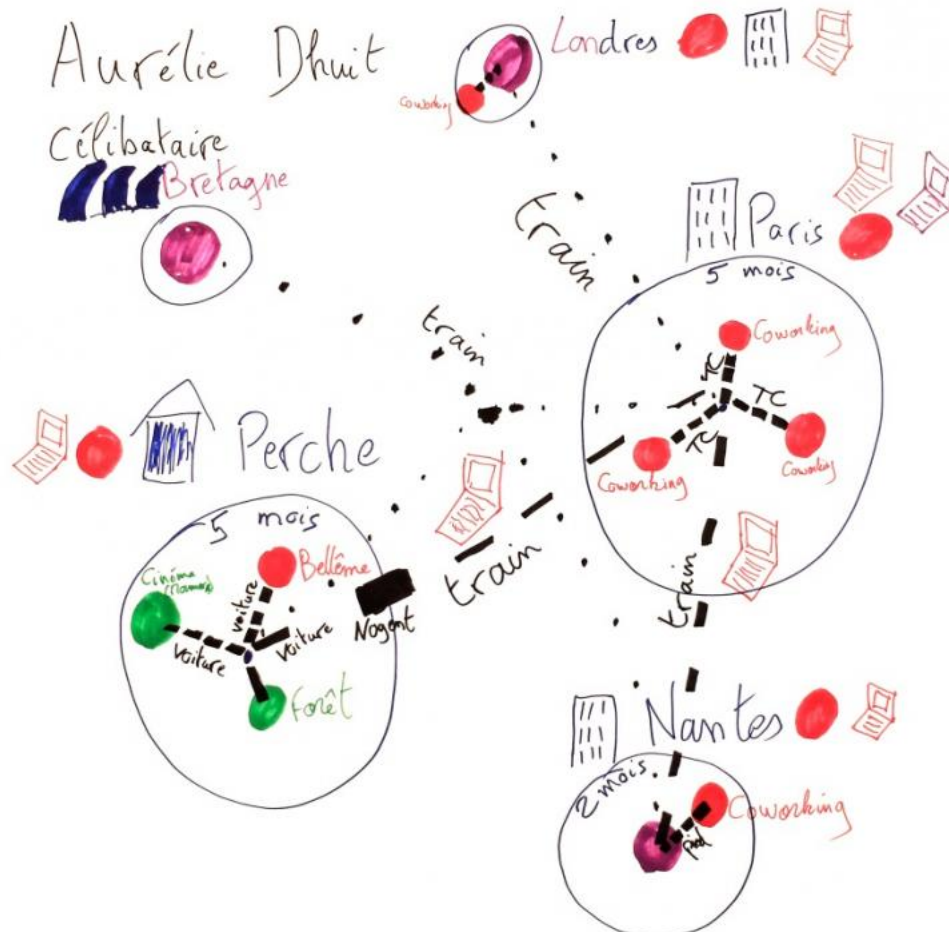 Aurélie Dhuit
Célibataire
Bretagne
Londres
Coworking
train
train
Paris
5 mois
Coworking
TC
TC
TC
Coworking
Coworking
Perche
5 mois
Cinéma
Bellême
voiture
voiture
voiture
Forêt
Nogent
train
train
Nantes
2 mois
Coworking
pied